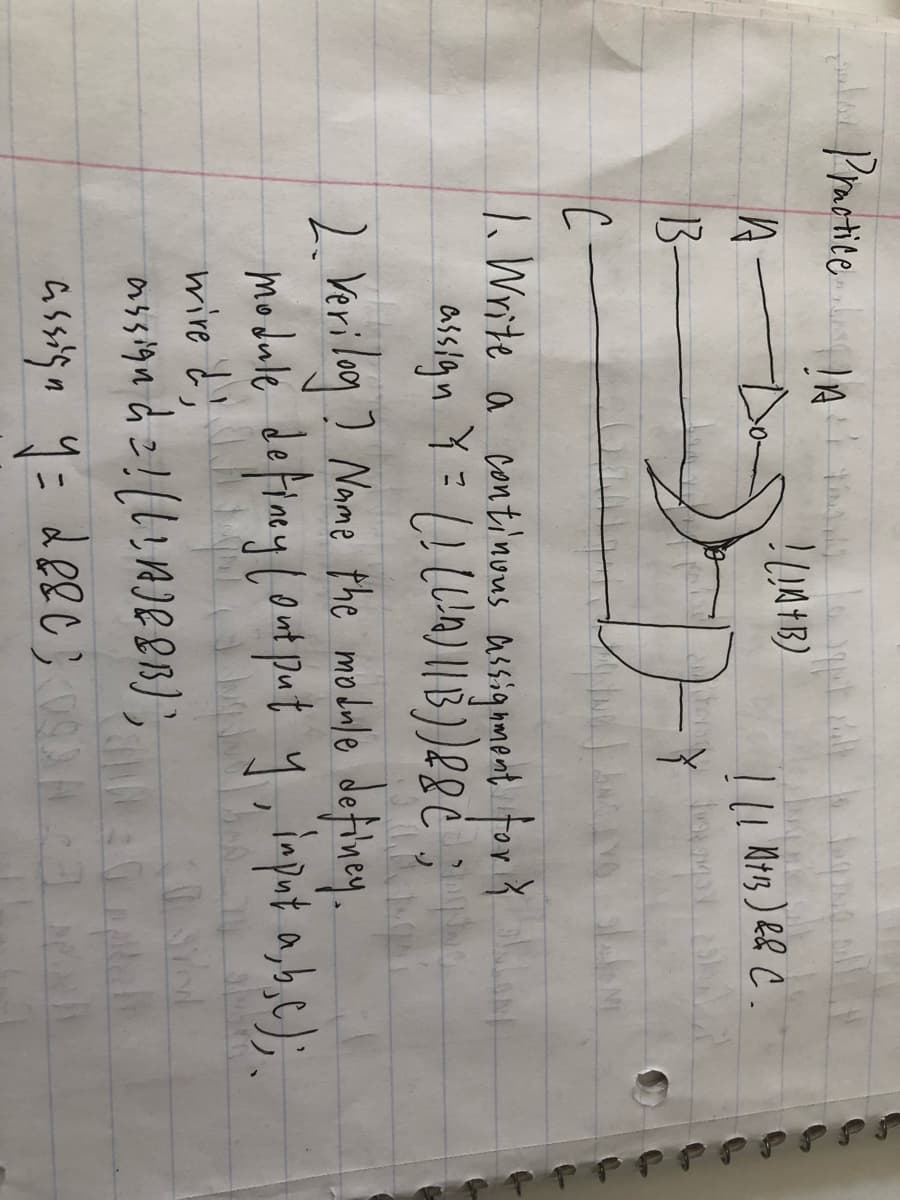 Practice
!A
!(!A+B)
!(!A+B)&&C.
A
B
C
Y
1. Write a continous assignment for Y
assign Y = (!((!A)||B))&&C;
2. Verilog? Name the module definey.
module definey(output y, input a,b,c);
wire d;
assign d=!((!A)&&B);
assign y= d&&C;